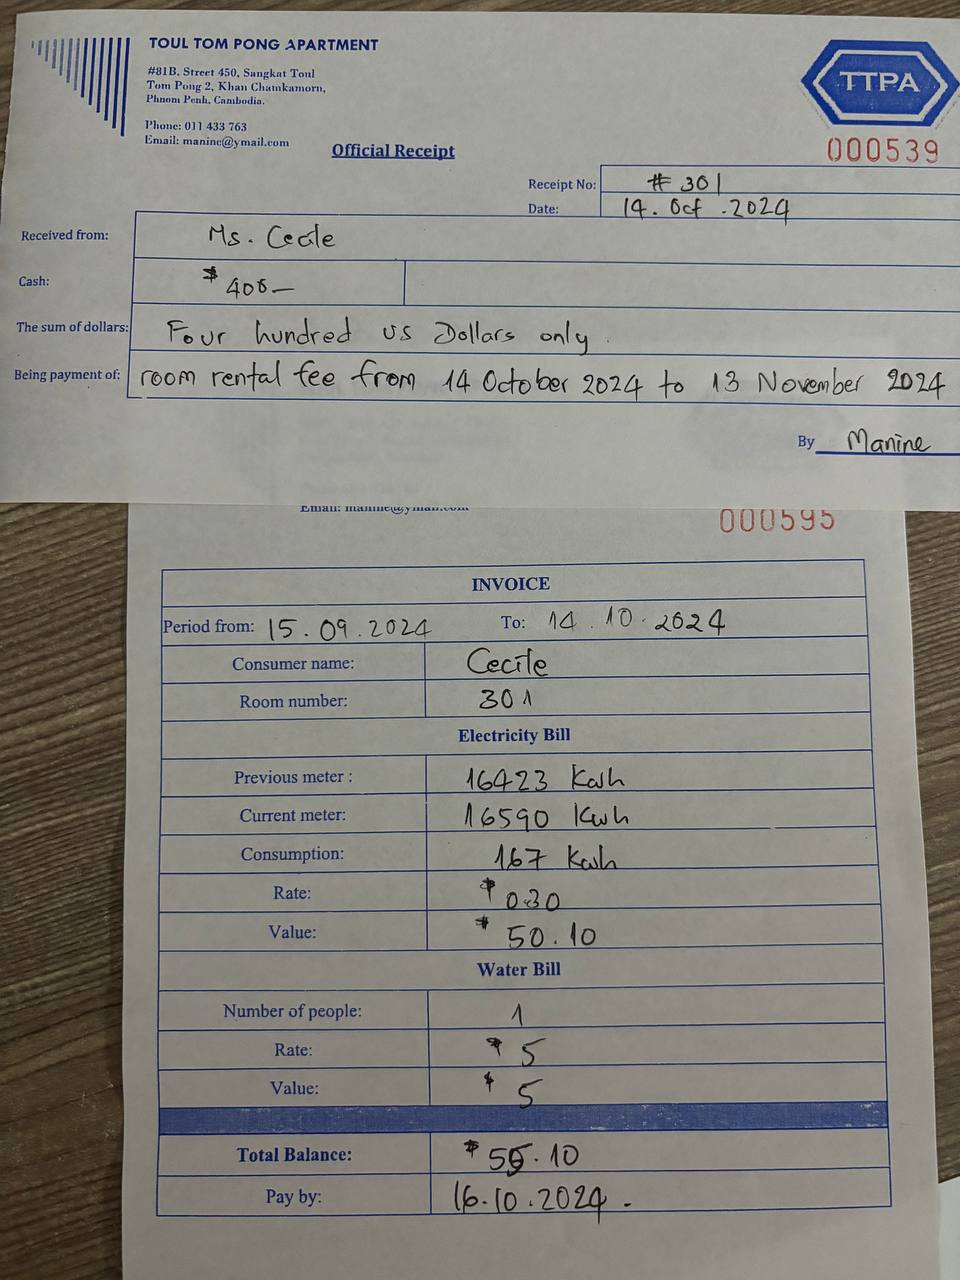 TOUL TOM PONG APARTMENT
#81B, Street 450, Sangkat Toul
Tom Pong 2, Khan Chamkamorn,
Phnom Penh, Cambodia.
Phone: 011 433 763
Email: manine@ymail.com
TTPA
000539
Official Receipt
Receipt No: # 301
Date: 14. Oct .2024
Received from: Ms. Cecile
Cash: $ 400-
The sum of dollars: Four hundred US Dollars only.
Being payment of: room rental fee from 14 October 2024 to 13 November 2024
By Manine
Email: manine@ymail.com
000595
INVOICE
Period from: 15.09.2024 To: 14.10.2024
Consumer name: Cecile
Room number: 301
Electricity Bill
Previous meter : 16423 Kwh
Current meter: 16590 Kwh
Consumption: 167 Kwh
Rate: $ 0.30
Value: $ 50.10
Water Bill
Number of people: 1
Rate: $ 5
Value: $ 5
Total Balance: $ 55.10
Pay by: 16.10.2024.